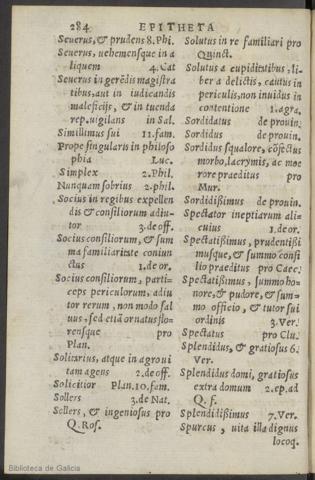 284 EPITHETA
Seuerus, & prudens 8. Phi.
Seuerus, uehemensque in a
liquem 4. Cat
Seuerus in gerēdis magistra
tibus, aut in iudicandis
maleficijs, & in tuenda
rep. uigilans in Sal.
Simillimus sui 11. fam.
Prope singularis in philoso
phia Luc.
Simplex 2. Phil.
Nunquam sobrius 2. phil.
Socius in regibus expellen
dis & consiliorum adiu-
tor 3. de off.
Socius consiliorum, & sum
ma familiaritate coniun
ctus 1. de or.
Socius consiliorum, parti-
ceps periculorum, adiu
tor rerum, non modo sal
uus, sed etiā ornatus flo-
rensque pro
Plan.
Solitarius, atque in agro ui
tam agens 2. de off.
Solicitior Plan. 10. fam.
Sollers 3. de Nat.
Sollers, & ingeniosus pro
Q. Ros.
Solutus in re familiari pro
Quinct.
Solutus a cupiditatibus, li-
ber a delictis, cautus in
periculis, non inuidus in
contentione 1. agra.
Sordidatus de prouin.
Sordidus de prouin.
Sordidus squalore, cōfectus
morbo, lacrymis, ac moe
rore praeditus pro
Mur.
Sordidißimus de prouin.
Spectator ineptiarum ali-
cuius 1. de or.
Spectatißimus, prudentißi
musque, & summo consi
lio praeditus pro Caec.
Spectatißimus, summo ho-
nore, & pudore, & sum-
mo officio, & tutor sui
ordinis 3. Ver.
Spectatus pro Clu.
Splendidus, & gratiosus 6.
Ver.
Splendidus domi, gratiosus
extra domum 2. ep. ad
Q. f.
Splendidißimus 7. Ver.
Spurcus, uita illa dignus
locoq.
Biblioteca de Galicia